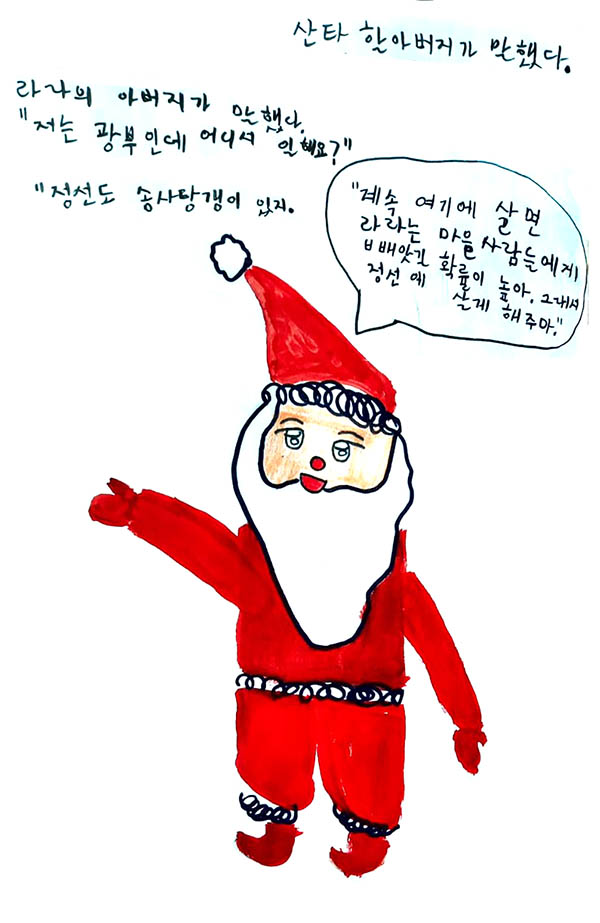 산타 할아버지가 말했다.
라라의 아버지가 말했다.
"저는 광부인데 어디서 일해요?"
"정선도 송사탕갱이 있지.
"계속 여기에 살면
라라는 마을 사람들에게
ㅂ배앗긴 확률이 높아. 그래서
정선에 살게 해주마."